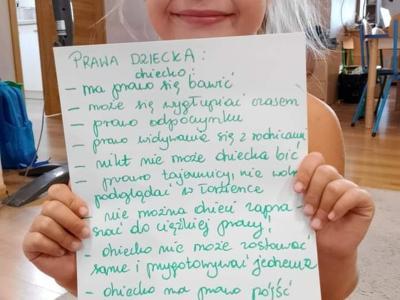 PRAWA DZIECKA:
dziecko:
- ma prawo się bawić
- może się wygłupiać czasem
- prawo odpoczynku
- prawo widywania się z rodzicami
- nikt nie może dziecka bić
- prawo tajemnicy, nie wolno
podglądać w łazience
- nie można dzieci zaprza-
gać do ciężkiej pracy!
- dziecko nie może zostawać
same i przygotowywać jedzenia
- dziecko ma prawo pójść